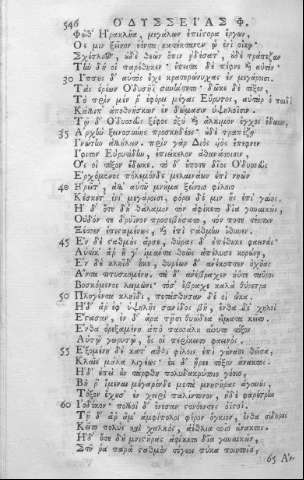 546 ΟΔΥΣΣΕΙΑΣ Φ.
Φῶθ' Ἡρακλῆα, μεγάλων ἐπιίστορα ἔργων,
Ὅς μιν ξεῖνον ἐόντα κατέκτανεν ᾧ ἐνὶ οἴκῳ·
Σχέτλιος, οὐδὲ θεῶν ὄπιν ᾐδέσατ', οὐδὲ τράπεζαν
Τὴν ἥν οἱ παρέθηκεν· ἔπειτα δὲ πέφνε καὶ αὐτόν·
30 Ἵππους δ' αὐτὸς ἔχε κρατερώνυχας ἐν μεγάροισι.
Τὰς ἐρέων Ὀδυσῆϊ συνήντετο· δῶκε δὲ τόξον,
Τὸ πρὶν μέν ῥ' ἐφόρει μέγας Εὔρυτος, αὐτὰρ ὁ παιδὶ
Κάλλιπ' ἀποθνήσκων ἐν δώμασιν ὑψηλοῖσι.
Τῷ δ' Ὀδυσεὺς ξίφος ὀξὺ καὶ ἄλκιμον ἔγχος ἔδωκεν,
35 Ἀρχὴν ξεινοσύνης προσκηδέος· οὐδὲ τραπέζῃ
Γνώτην ἀλλήλων. πρὶν γὰρ Διὸς υἱὸς ἔπεφνεν
Ἴφιτον Εὐρυτίδην, ἐπιείκελον ἀθανάτοισιν,
Ὅς οἱ τόξον ἔδωκε. τὸ δ' οὔποτε δῖος Ὀδυσσεὺς
Ἐρχόμενος πόλεμόνδε μελαινάων ἐπὶ νηῶν
40 Ἡρεῖτ', ἀλλ' αὐτοῦ μνῆμα ξείνοιο φίλοιο
Κέσκετ' ἐνὶ μεγάροισι, φόρει δέ μιν ἧς ἐπὶ γαίης.
Ἡ δ' ὅτε δὴ θάλαμον τὸν ἀφίκετο δῖα γυναικῶν,
Οὐδόν τε δρύϊνον προσεβήσατο, τόν ποτε τέκτων
Ξέσσεν ἐπισταμένως, καὶ ἐπὶ στάθμην ἴθυνεν·
45 Ἐν δὲ σταθμοὺς ἄρσε, θύρας δ' ἐπέθηκε φαεινάς·
Αὐτίκ' ἄρ' ἥ γ' ἱμάντα θοῶς ἀπέλυσε κορώνης,
Ἐν δὲ κληῖδ' ἧκε, θυρέων δ' ἀνέκοπτεν ὀχῆας
Ἄντα τιτυσκομένη. τὰ δ' ἀνέβραχεν ἠΰτε ταῦρος
Βοσκόμενος λειμῶνι· τόσ' ἔβραχε καλὰ θύρετρα
50 Πληγέντα κληῖδι, πετάσθησαν δέ οἱ ὦκα.
Ἡ δ' ἄρ' ἐφ' ὑψηλῆς σανίδος βῆ, ἔνθα δὲ χηλοὶ
Ἕστασαν, ἐν δ' ἄρα τῇσι θυώδεα εἵματα κεῖτο.
Ἔνθεν ὀρεξαμένη ἀπὸ πασσάλου αἴνυτο τόξον
Αὐτῷ γωρυτῷ, ὅς οἱ περίκειτο φαεινός.
55 Ἑζομένη δὲ κατ' αὖθι φίλοις ἐπὶ γούνασι θεῖσα,
Κλαῖε μάλα λιγέως· ἐκ δ' ᾕρεε τόξον ἄνακτος.
Ἡ δ' ἐπεὶ οὖν τάρφθη πολυδακρύτοιο γόοιο,
Βῆ ῥ' ἴμεναι μέγαρόνδε μετὰ μνηστῆρας ἀγαυοὺς,
Τόξον ἔχουσ' ἐν χειρὶ παλίντονον, ἠδὲ φαρέτρην
60 Ἰοδόκον· πολλοὶ δ' ἔνεσαν στονόεντες ὀϊστοί.
Τῇ δ' ἄρ' ἅμ' ἀμφίπολοι φέρον ὄγκιον, ἔνθα σίδηρος
Κεῖτο πολὺς καὶ χαλκὸς, ἀέθλια τοῖο ἄνακτος.
Ἡ δ' ὅτε δὴ μνηστῆρας ἀφίκετο δῖα γυναικῶν,
Στῆ ῥα παρὰ σταθμὸν τέγεος πύκα ποιητοῖο,
65 Ἄν-